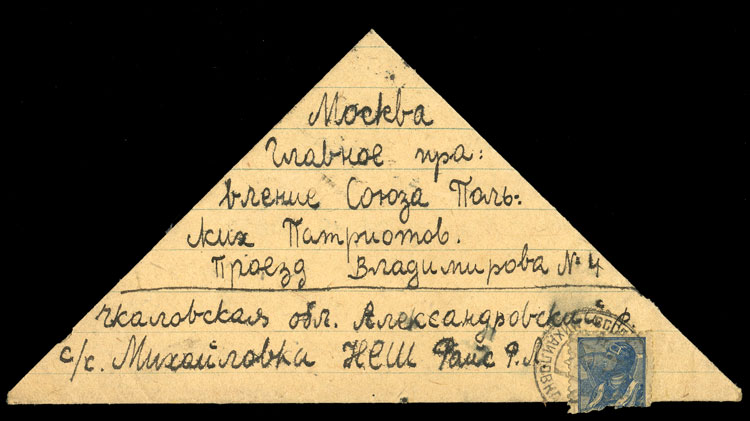 Москва
Главное пра:
вление Союза Поль:
ких Патриотов.
Проезд Владимирова № 4
Чкаловская обл. Александровский р.
с/с. Михайловка НСШ Райс Р.Л
МИХАЙЛОВК